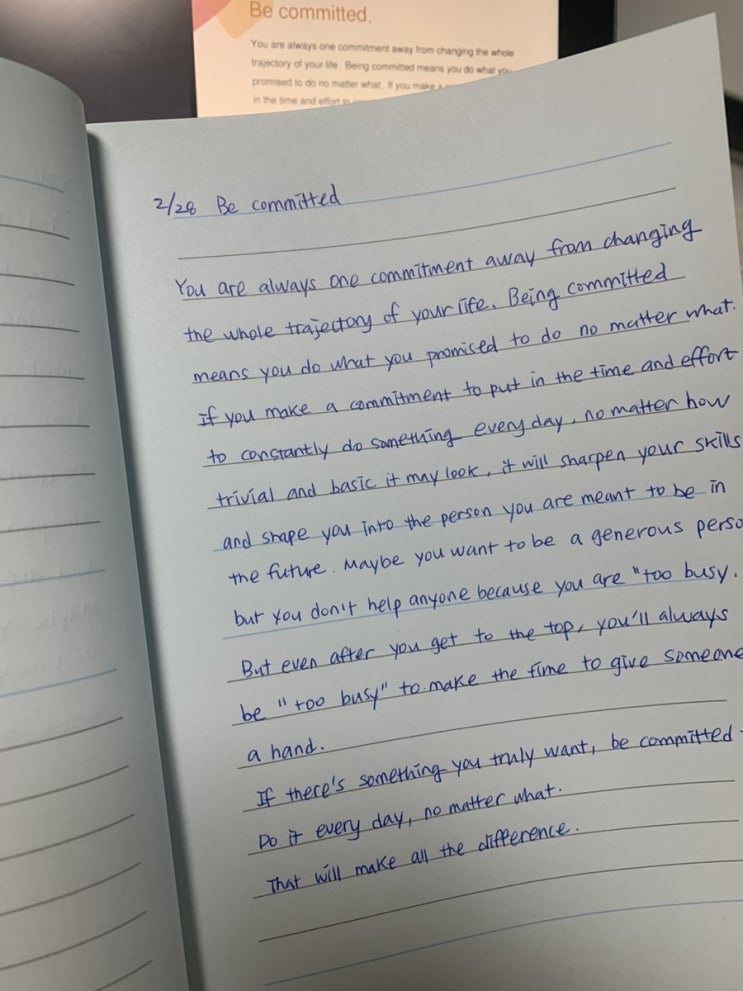 Be committed.
You are always one commitment away from changing the whole
trajectory of your life. Being committed means you do what you
promised to do no matter what. If you make a
in the time and effort to
2/28 Be committed
You are always one commitment away from changing
the whole trajectory of your life. Being committed
means you do what you promised to do no matter what.
If you make a commitment to put in the time and effort
to constantly do something every day, no matter how
trivial and basic it may look, it will sharpen your skills
and shape you into the person you are meant to be in
the future. Maybe you want to be a generous perso
but you don't help anyone because you are "too busy.
But even after you get to the top, you'll always
be "too busy" to make the time to give someone
a hand.
If there's something you truly want, be committed
Do it every day, no matter what.
That will make all the difference.